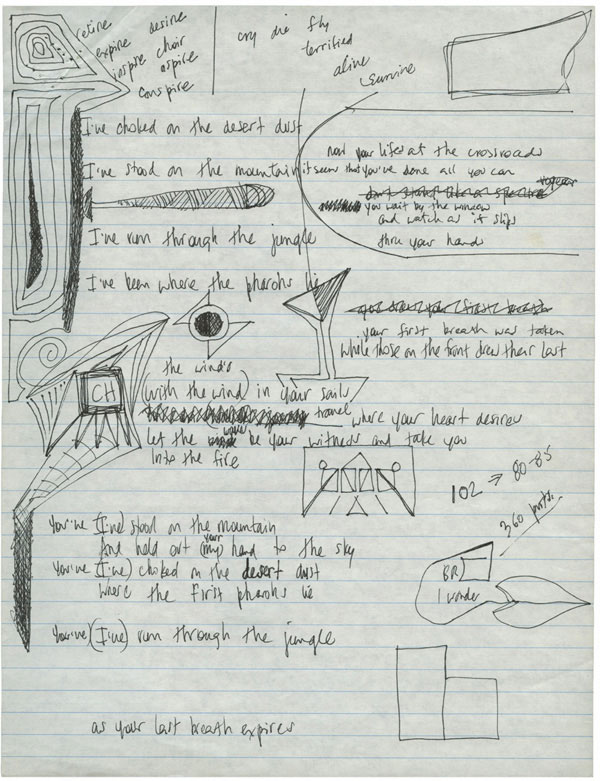 retire desire
expire choir
inspire aspire
conspire
cry die fly
terrified
alive
survive
I've choked on the desert dust
I've stood on the mountain
I've run through the jungle
I've been where the pharohs lie
now your life's at the crossroads
it seems that you've done all you can
don't stand like a spectre
you wait by the window
and watch as it slips
thru your hand
you drew your first breath
your first breath was taken
while those on the front drew their last
the wind's
(with the wind) in your sails
travel where your heart desires
let the water be your witness and take you
Into the fire
CH
102 → 80-85
360 pnts.
BR
I wonder
You've (I've) stood on the mountain
And held out your (my) hand to the sky
You've (I've) choked on the desert dust
Where the first pharohs lie
You've (I've) run through the jungle
as your last breath expires